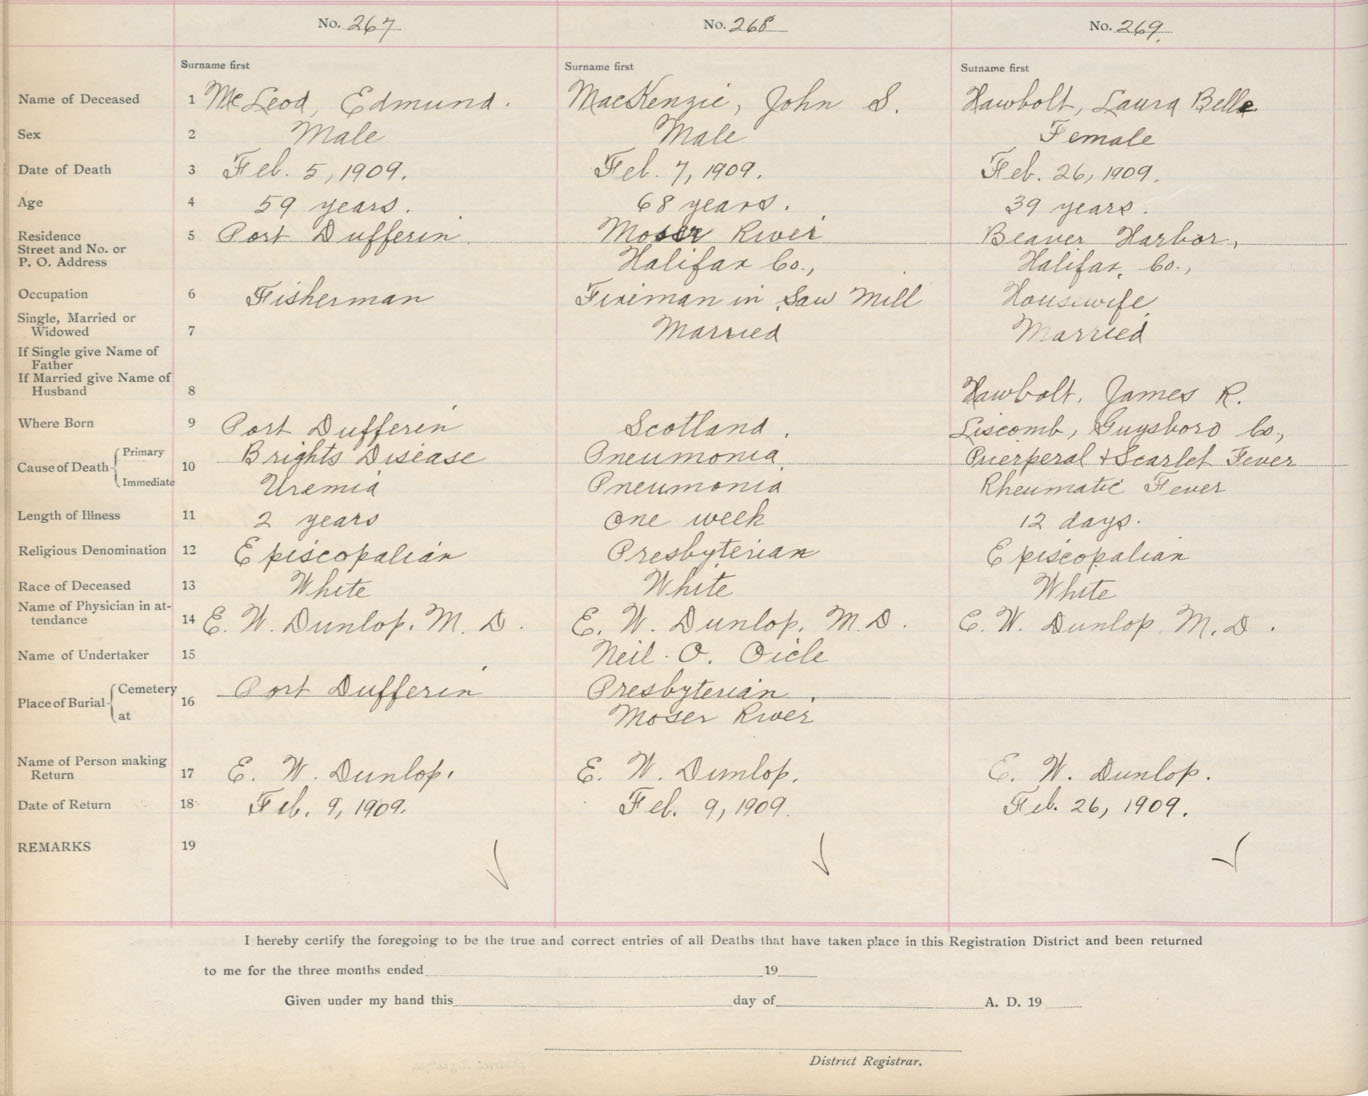 No. 267 No. 268 No. 269.
Surname first Surname first Surname first
Name of Deceased 1 McLeod, Edmund. MacKenzie, John S. Hawbolt, Laura Belle
Sex 2 Male Male Female
Date of Death 3 Feb. 5, 1909. Feb. 7, 1909. Feb. 26, 1909.
Age 4 59 years. 68 years. 39 years.
Residence 5 Port Dufferin Moser River Beaver Harbor,
Street and No. or
P. O. Address Halifax Co., Halifax, Co.,
Occupation 6 Fisherman Fireman in Saw Mill Housewife
Single, Married or
Widowed 7 Married Married
If Single give Name of
Father
If Married give Name of
Husband 8 Hawbolt, James R.
Where Born 9 Port Dufferin Scotland. Liscomb, Guysboro Co.,
Cause of Death Primary 10 Brights Disease Pneumonia Puerperal + Scarlet Fever
Immediate Uremia Pneumonia Rheumatic Fever
Length of Illness 11 2 years one week 12 days.
Religious Denomination 12 Episcopalian Presbyterian Episcopalian
Race of Deceased 13 White White White
Name of Physician in at-
tendance 14 E. W. Dunlop. M. D. E. W. Dunlop, M. D. E. W. Dunlop M. D.
Name of Undertaker 15 Neil O. Oicle
Place of Burial Cemetery 16 Port Dufferin Presbyterian.
at Moser River
Name of Person making
Return 17 E. W. Dunlop. E. W. Dunlop. E. W. Dunlop.
Date of Return 18 Feb. 9, 1909. Feb. 9, 1909. Feb. 26, 1909.
REMARKS 19
I hereby certify the foregoing to be the true and correct entries of all Deaths that have taken place in this Registration District and been returned
to me for the three months ended 19
Given under my hand this day of A. D. 19
District Registrar.